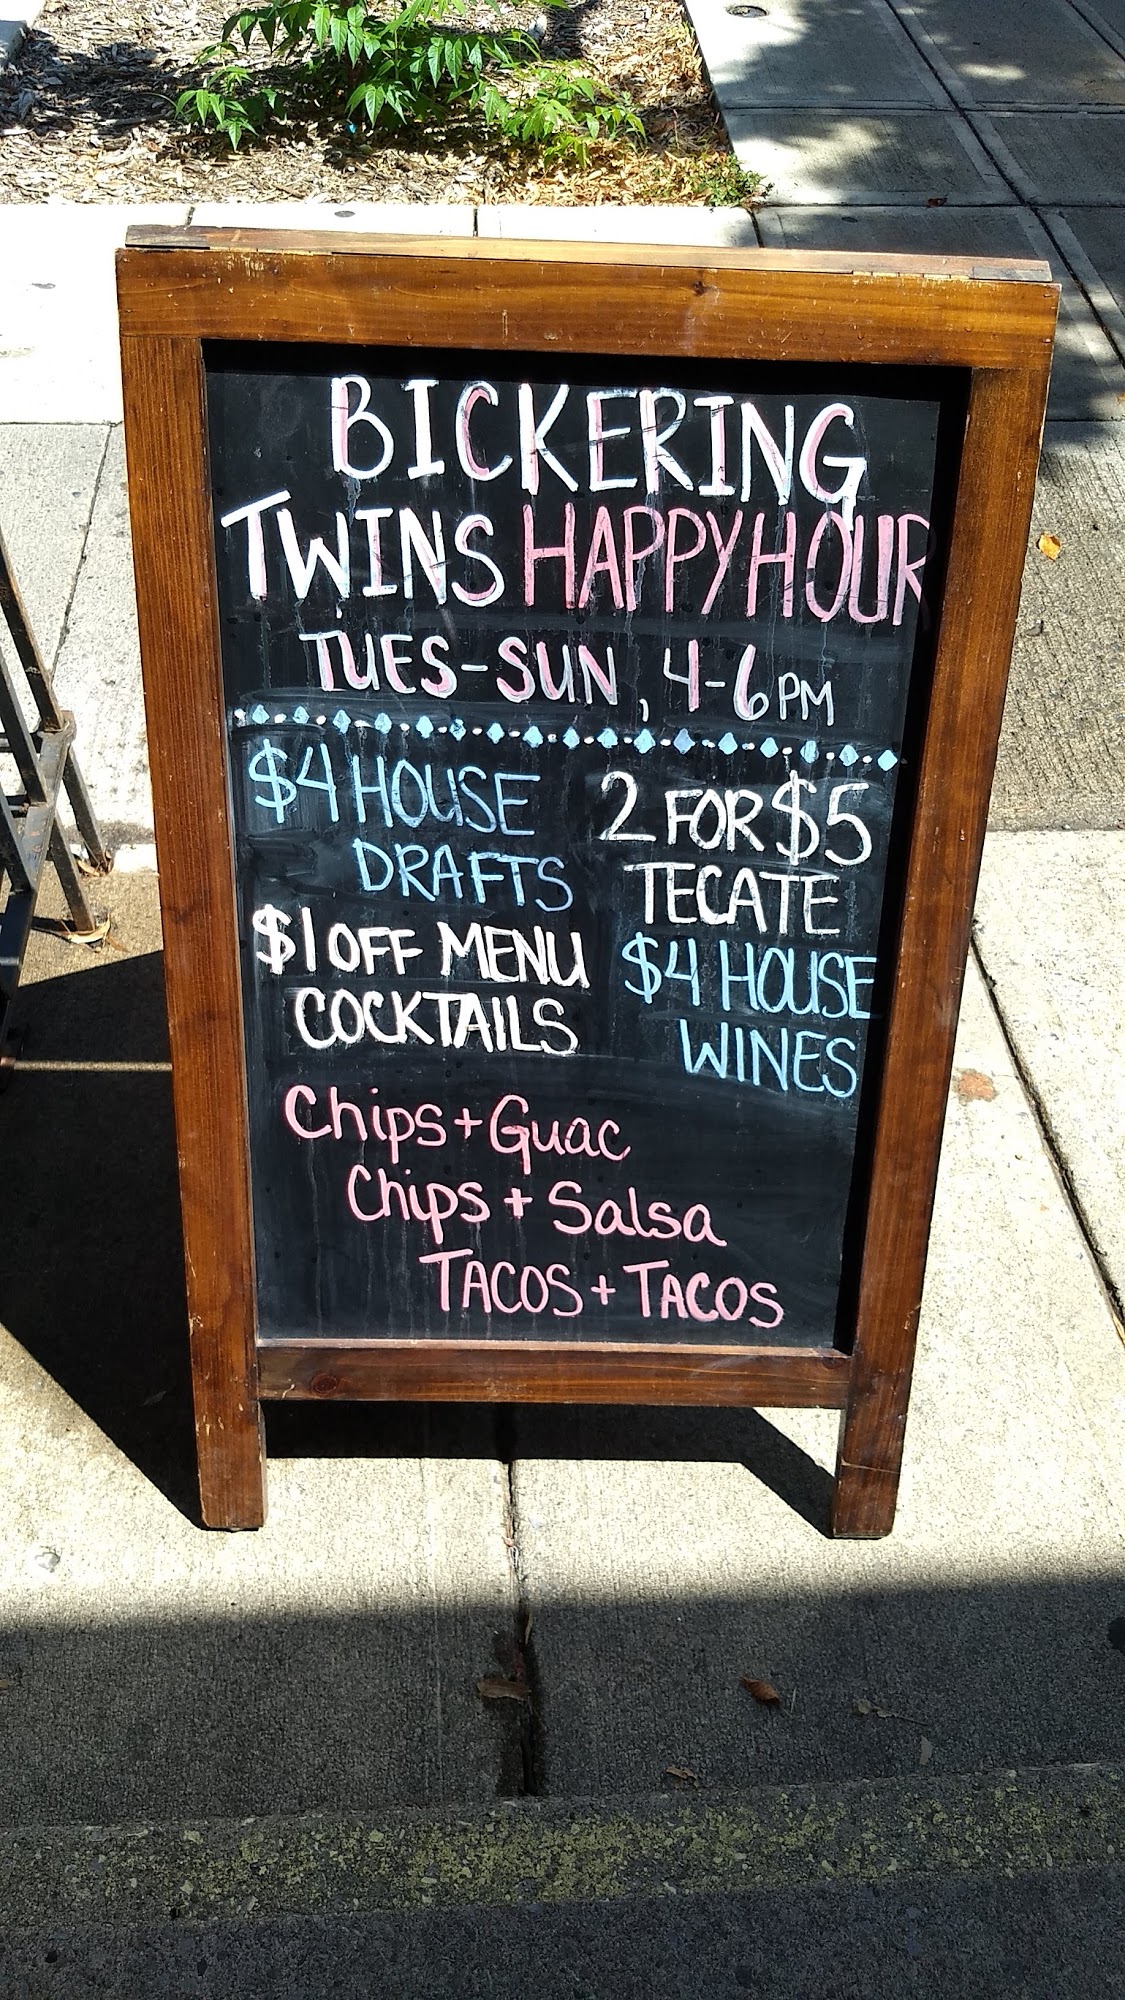 BICKERING
TWINS HAPPY HOUR
TUES-SUN, 4-6PM
$4 HOUSE
DRAFTS
$1 OFF MENU
COCKTAILS
2 FOR $5
TECATE
$4 HOUSE
WINES
Chips + Guac
Chips + Salsa
TACOS + TACOS